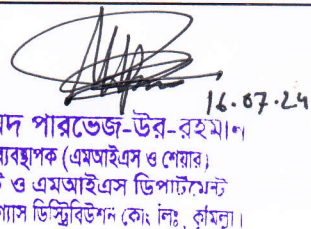 16.07.24
পারভেজ-উর-রহমান
ব্যবস্থাপক (এমআইএস ও শেয়ার)
ও এমআইএস ডিপার্টমেন্ট
গ্যাস ডিস্ট্রিবিউশন কোং লিঃ, কুমিল্লা।